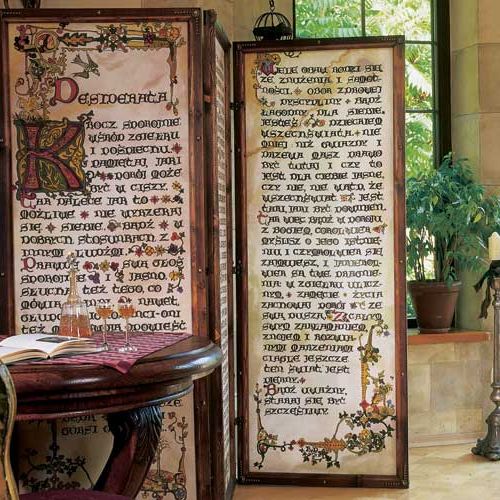 DESIDERATA
KROCZ SPOKOJNIE
WŚRÓD ZGIEŁKU
I POŚPIECHU.
PAMIĘTAJ JAKI
POKÓJ MOŻE
BYĆ W CISZY.
TAK DALECE JAK TO
MOŻLIWE NIE WYRZEKAJ
SIĘ SIEBIE. BĄDŹ W
DOBRYCH STOSUNKACH Z
INNYMI LUDŹMI.
PRAWDĘ SWĄ GŁOŚ
SPOKOJNIE I JASNO.
SŁUCHAJ TEŻ TEGO CO
MÓWIĄ NAWET
ONI
TEŻ MAJĄ OPOWIEŚĆ
WIELE OBAW RODZI SIĘ
ZE ZNUŻENIA I SAMOT-
NOŚCI. OBOK ZDROWEJ
DYSCYPLINY BĄDŹ
ŁAGODNY DLA SIEBIE.
JESTEŚ DZIECKIEM
WSZECHŚWIATA. NIE
MNIEJ NIŻ GWIAZDY I
DRZEWA MASZ PRAWO
BYĆ TUTAJ I CZY TO
JEST DLA CIEBIE JASNE CZY
NIE, NIE WĄTP, ŻE
WSZECHŚWIAT JEST
TAKI JAKI BYĆ POWINIEN.
TAK WIĘC BĄDŹ W POKOJU
Z BOGIEM, COKOLWIEK
MYŚLISZ O JEGO ISTNIE-
NIU I CZYMKOLWIEK SIĘ
ZAJMUJESZ I JAKIEKOL-
WIEK SĄ TWE PRAGNIE-
NIA W ZGIEŁKU ULICZ-
NYM, ZAMĘCIE ŻYCIA
ZACHOWAJ POKÓJ ZE
SWĄ DUSZĄ. Z CAŁYM
SWYM ZAKŁAMANIEM,
ZNOJEM I ROZWIA-
NYMI MARZENIAMI
CIĄGLE JESZCZE
TEN ŚWIAT JEST
PIĘKNY.
BĄDŹ UWAŻNY,
STARAJ SIĘ BYĆ
SZCZĘŚLIWY.